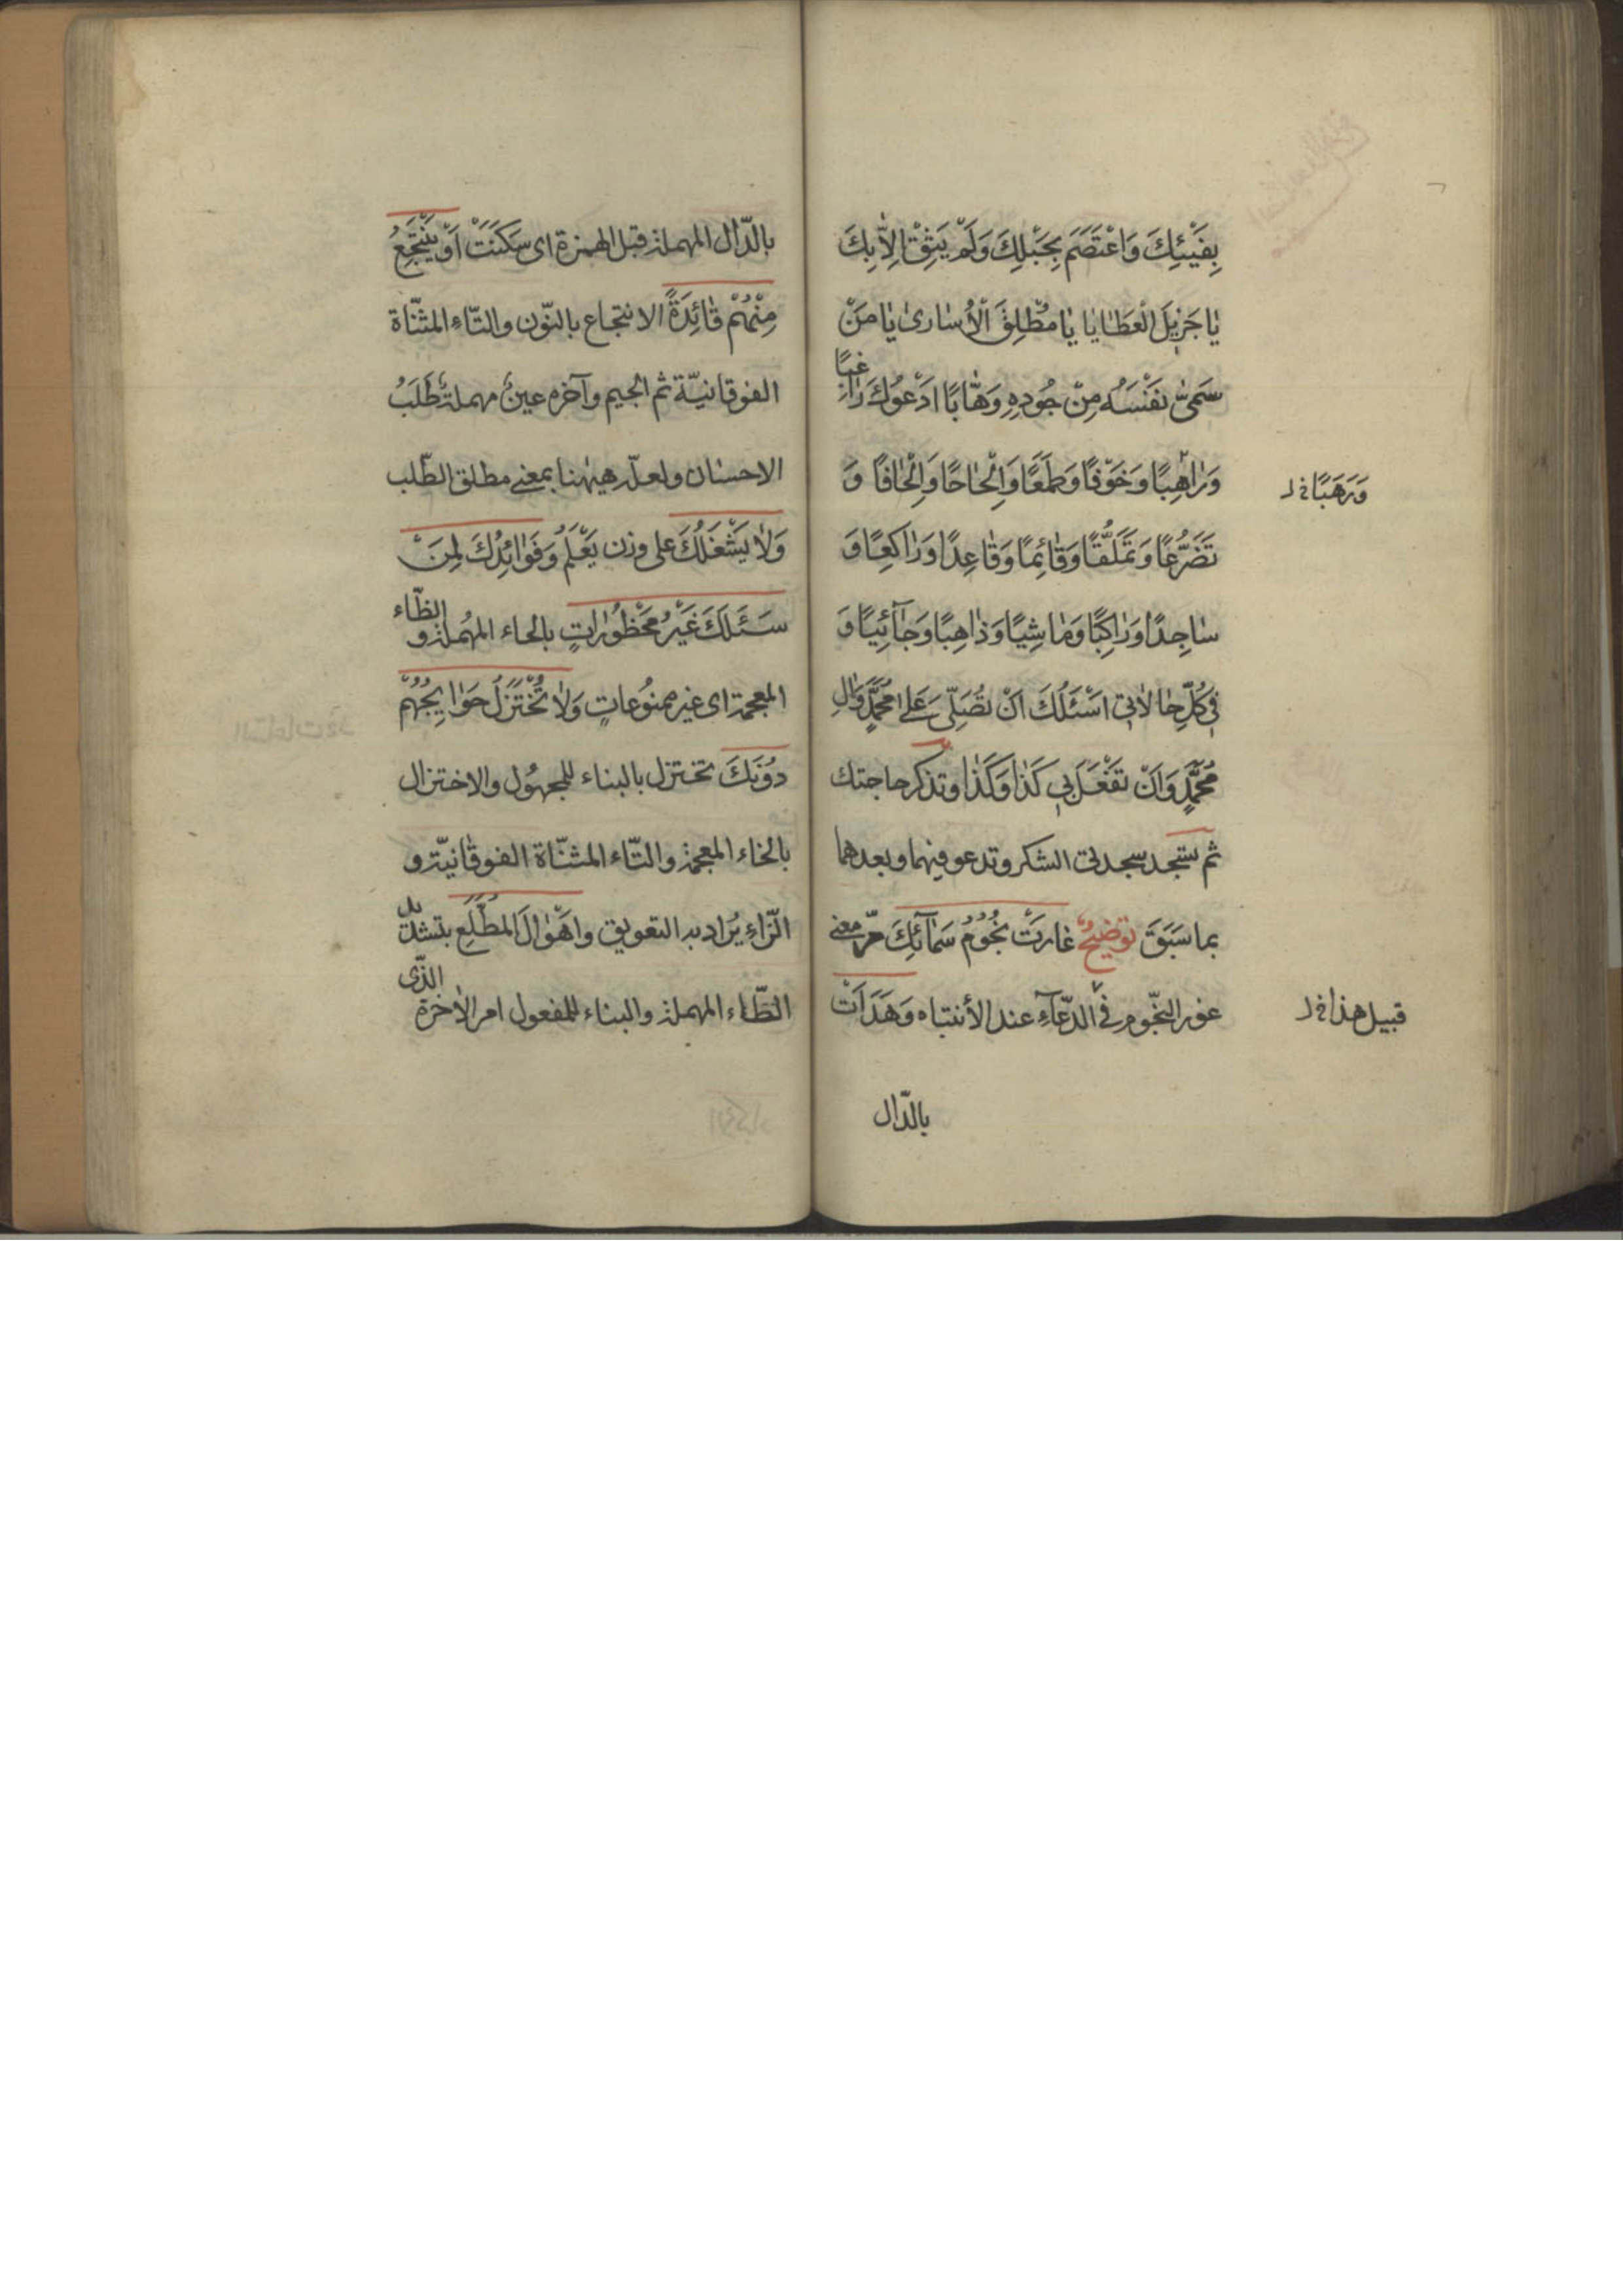 بِفَيْئِكَ وَاعْتَصَمَ بِحَبْلِكَ وَلَمْ يَثِقْ اِلاّٰ بِكَ
يٰا جَزِيلَ الْعَطٰايٰا يٰا مُطْلِقَ الْأُسٰارىٰ يٰا مَنْ
سَمّىٰ نَفْسَهُ مِنْ جُودِهِ وَهّٰابًا اَدْعُوكَ رٰاغِبًا
وَرٰاهِبًا وَخَوْفًا وَطَمَعًا وَاِلْحٰاحًا وَاِلْحٰافًا وَ
وَرَهَبًا خ ل
تَضَرُّعًا وَتَمَلُّقًا وَقٰائِمًا وَقٰاعِدًا وَرٰاكِعًا وَ
سٰاجِدًا وَرٰاكِبًا وَمٰاشِيًا وَذٰاهِبًا وَجٰآئِيًا وَ
فِي كُلِّ حٰالاٰتِي اَسْئَلُكَ اَنْ تُصَلِّيَ عَلٰى مُحَمَّدٍ وَآلِ
مُحَمَّدٍ وَاَنْ تَفْعَلَ بِي كَذٰا وَكَذٰا وتذكر حاجتك
ثم تسجد سجدتى الشكر وتدعو فيهما وبعدهما
بما سَبَقَ توضيحٌ غٰارَتْ نُجُومُ سَمٰآئِكَ مرّ معنى
غور النّجوم فى الدّعآءِ عند الأنتباه وَهَدَأَتْ
قبيل هذا خ ل
بالدّال
بالدّال المهملة قبل الهمزة اى سَكَنَتْ اَوْ يَنْتَجِعُ
مِنْهُمْ فٰائِدَةً الانتجاع بالنّون والتّاءِ المثنّاة
الفوقانيّة ثم الجيم وآخره عينٌ مهملةٌ طَلَبُ
الاحسان ولعلّه هيهنا بمعنى مطلق الطّلب
وَلاٰ يَشْغَلُكَ على وزن يَعْلَمُ وَفَوٰائِدُكَ لِمَنْ
سَئَلَكَ غَيْرُ مَحْظُورٰاتٍ بالحاء المهُملة والظّاء
المعجمة اى غير ممنوُعاتٍ وَلاٰ تُخْتَزَلُ حَوٰايِجُهُمْ
دوُنَكَ تختزل بالبناء للمجهوُل والاختزال
بالخاء المعجمة والتّاء المثنّاة الفوقٰانيّة و
الزّاءِ يُراد به التعويق واَهْوٰالَ المُطَّلَعِ بتشديد
الطّاء المهملة والبناء للمفعول امر الاٰخرة الذّى